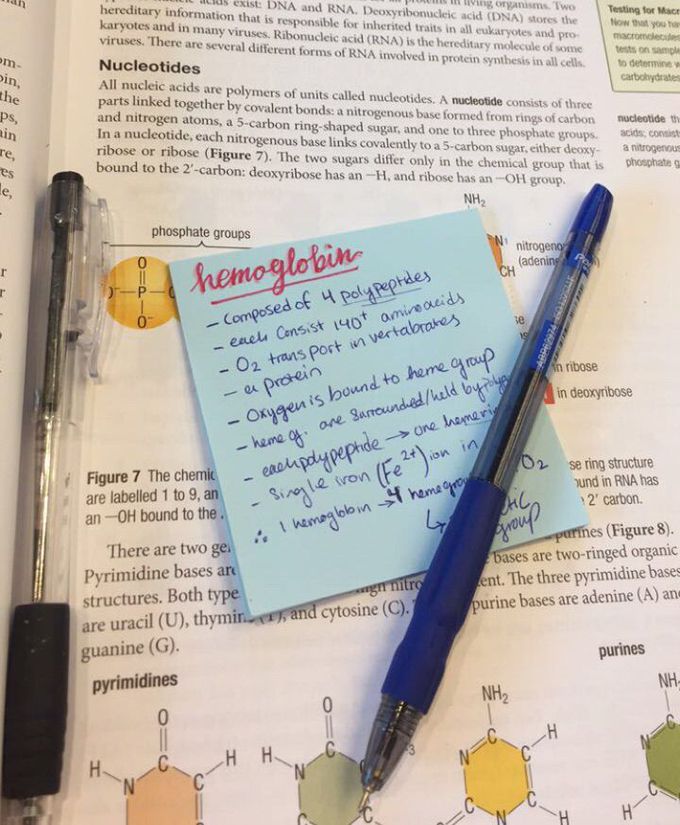 acids exist: DNA and RNA. Deoxyribonucleic acid (DNA) stores the
hereditary information that is responsible for inherited traits in all eukaryotes and pro-
karyotes and in many viruses. Ribonucleic acid (RNA) is the hereditary molecule of some
viruses. There are several different forms of RNA involved in protein synthesis in all cells.
Nucleotides
All nucleic acids are polymers of units called nucleotides. A nucleotide consists of three
parts linked together by covalent bonds: a nitrogenous base formed from rings of carbon
and nitrogen atoms, a 5-carbon ring-shaped sugar, and one to three phosphate groups.
In a nucleotide, each nitrogenous base links covalently to a 5-carbon sugar, either deoxy-
ribose or ribose (Figure 7). The two sugars differ only in the chemical group that is
bound to the 2′-carbon: deoxyribose has an —H, and ribose has an —OH group.
Testing for Macr
Now that you hav
macromolecules
tests on sample
to determine w
carbohydrates
nucleotide th
acids; consist
a nitrogenous
phosphate g
NH₂
phosphate groups
O
P
O⁻
N
CH
nitrogeno
(adenin
in ribose
in deoxyribose
hemoglobin
- composed of 4 polypeptides
- each consist 140+ amino acids
- O2 transport in vertabrates
- a protein
- Oxygen is bound to heme group
- heme g. are surrounded/held by polyp
- each polypeptide → one heme
- single iron (Fe²⁺) ion in
∴ 1 hemoglobin → 4 heme grou
O2
group
Figure 7 The chemic
are labelled 1 to 9, an
an —OH bound to the
se ring structure
und in RNA has
2′ carbon.
There are two ge
Pyrimidine bases are
structures. Both type
are uracil (U), thymin
and cytosine (C).
guanine (G).
purines (Figure 8).
bases are two-ringed organic
nitro
ent. The three pyrimidine bases
purine bases are adenine (A) an
pyrimidines
purines
O
C
H
N
H
C
O
H
N
C
NH₂
C
N
C
H
C
N
C
H
NH
C
N
C
H